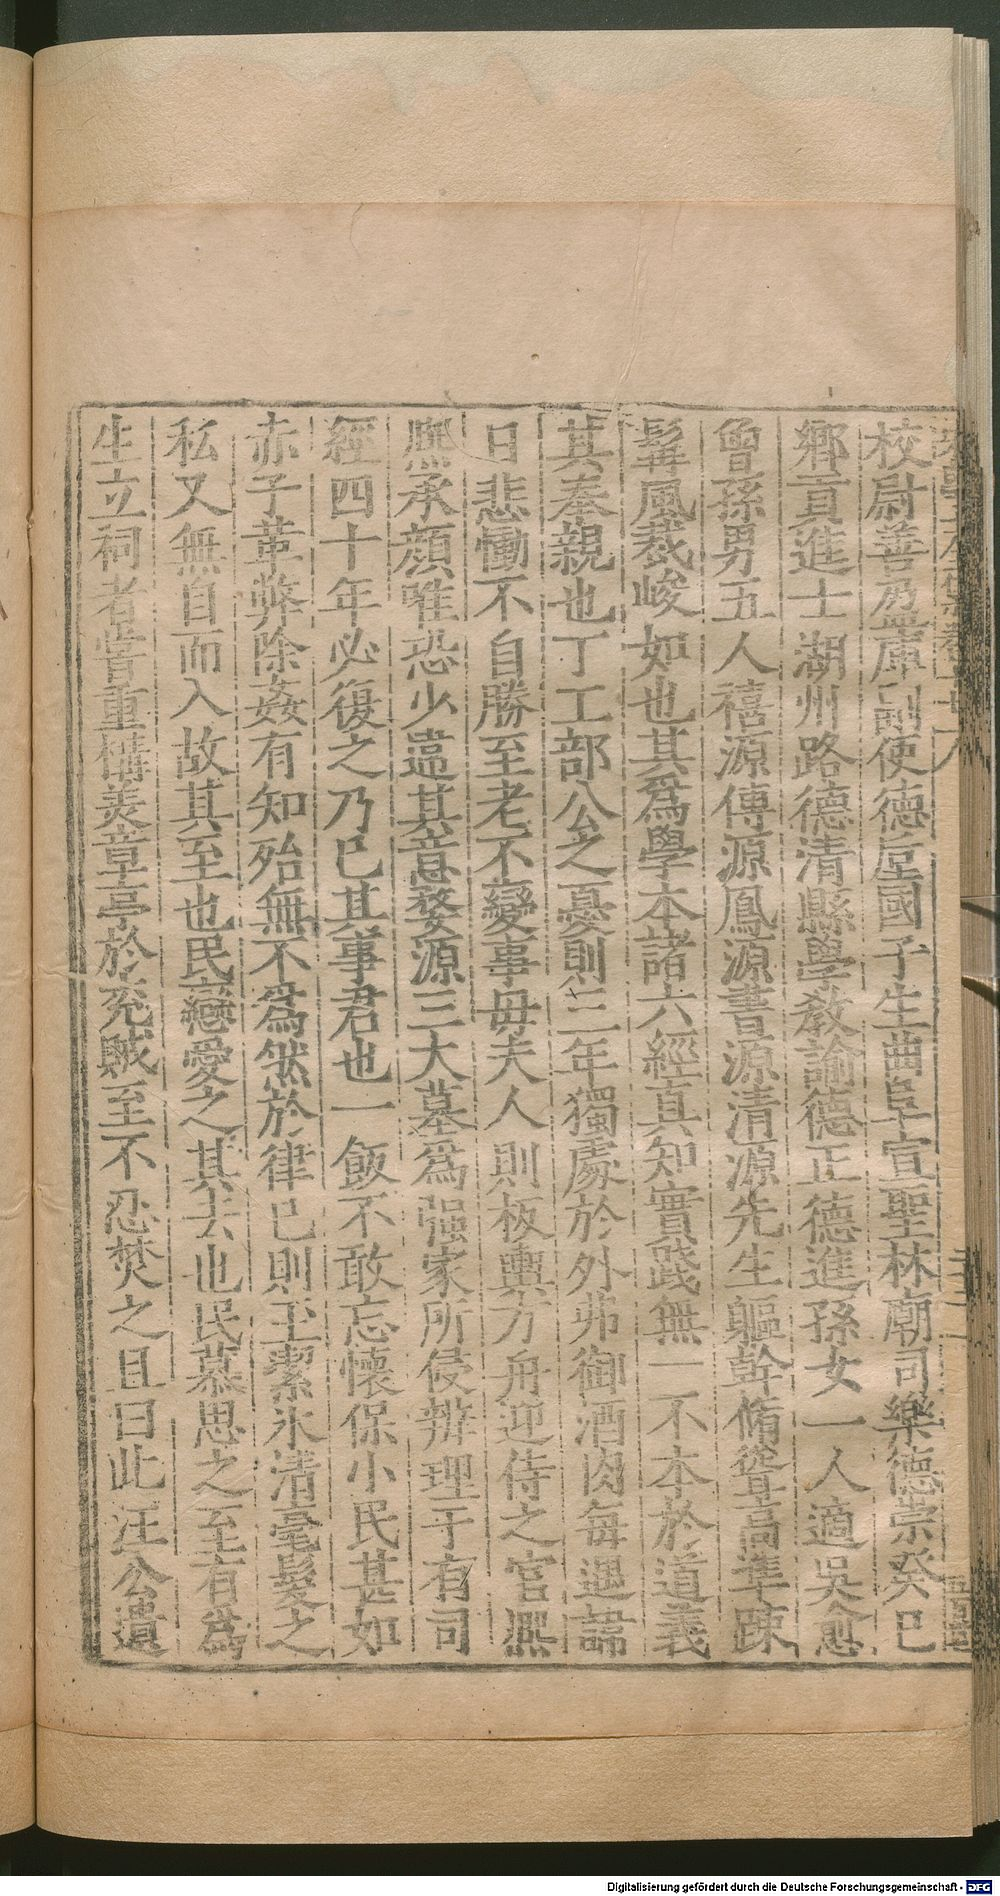 校尉善為庫副使德垕國子生曲阜宣聖林廟司樂德崇癸巳
鄉貢進士湖州路德清縣學教諭德正德進孫女一人適吳愈
曾孫男五人禧源傳源鳳源書源清源先生軀幹脩聳高準踈
髯風裁峻如也其為學本諸六經真知實踐無一不本於道義
其奉親也丁工部公之憂則三年獨處於外弗御酒肉每遇諱
日悲慟不自勝至老不變事毋夫人則板輿方舟迎侍之官凞
凞承顔唯恐少違其意婺源三大墓為强家所侵辨理于有司
經四十年必復之乃已其事君也一飯不敢忘懷保小民甚如
赤子革弊除姦有知殆無不為然於律已則玉潔氷清毫髮之
私又無自而入故其至也民戀愛之其去也民慕思之至有為
生立祠者嘗重構美章亭於兖賊至不忍焚之且曰此汪公遺
Digitalisierung gefördert durch die Deutsche Forschungsgemeinschaft - DFG